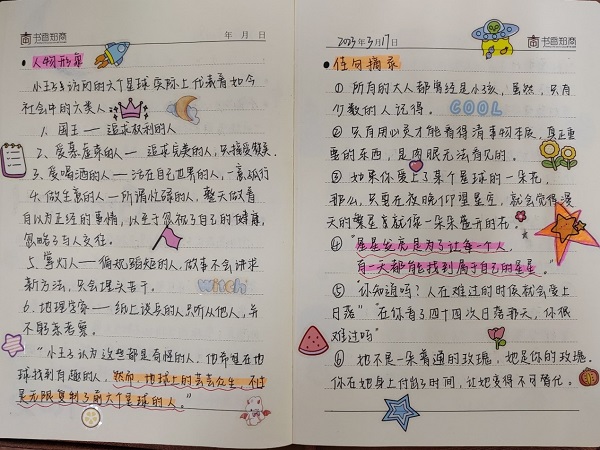 书香知商
年 月 日
人物形象
小王子访问的六个星球实际上代表着如今
社会中的六类人
1. 国王—— 追求权利的人
2、爱慕虚荣的人—— 追求完美的人,只接受赞美.
3. 爱喝酒的人—— 活在自己世界的人,一意孤行
4. 做生意的人—— 所谓忙碌的人,整天做着
自以为正经的事情,以至于忽视了自己的健康,
忽略了与人交往。
5. 掌灯人—— 偏规蹈矩的人,做事不会讲求
新方法,只会埋头苦干。
witch
6. 地理学家—— 纸上谈兵的人只听从他人,并
不勘察考察.
“小王子认为这些都是奇怪的人,他希望在地
球找到有趣的人,然而,地球上的芸芸众生,不过
是无限复制了前六个星球的人。”
2023年3月17日
书香知商
佳句摘录
① 所有的大人都曾经是小孩,虽然,只有
少数的人记得。
COOL
② 只有用心灵才能看得清事物本质,真正重
要的东西,是肉眼无法看见的。
③ 如果你爱上了某个星球的一朵花,
那么,只要在夜晚仰望星空,就会觉得漫
天的繁星就像一朵朵盛开的花。
④ “星星发亮是为了让每一个人
有一天都能找到属于自己的星星。”
⑤ “你知道吗?人在难过的时候就会爱上
日落” 在你看了四十四次日落那天,你很
难过吗”
⑥ 她不是一朵普通的玫瑰,她是你的玫瑰.
你在她身上付出了时间,让她变得不可替代。